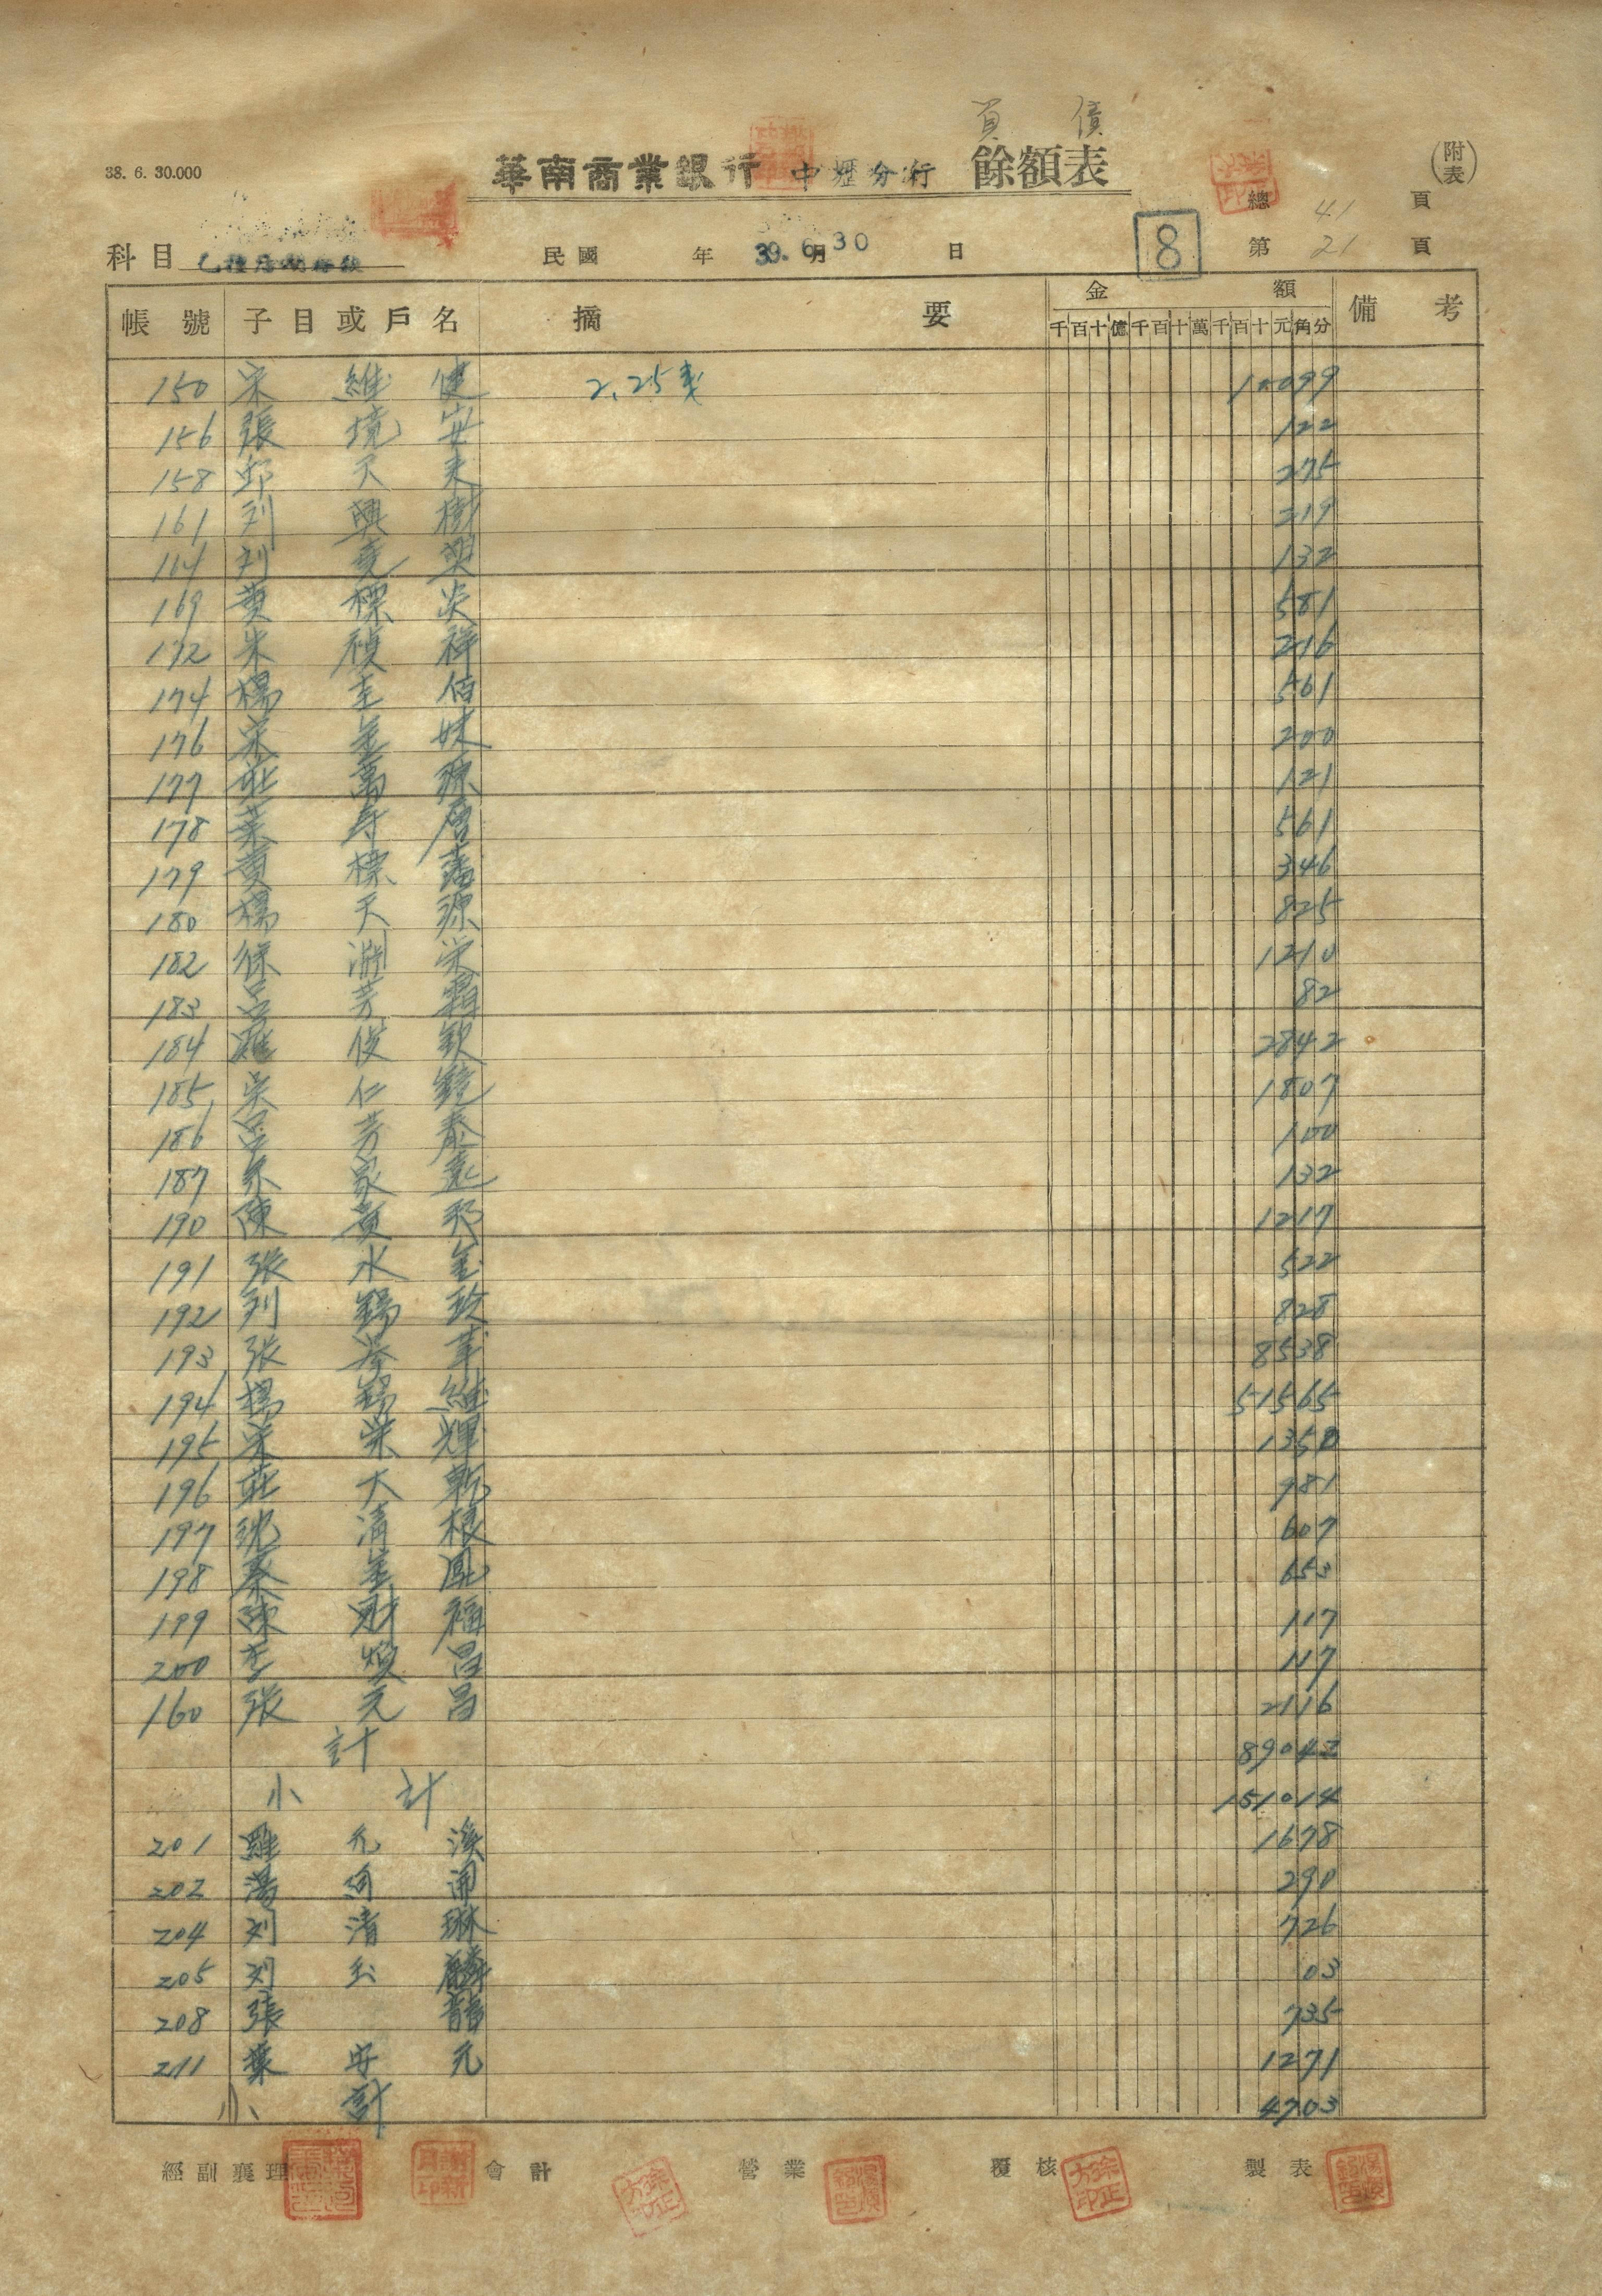 負債
38. 6. 30.000
華南商業銀行 中壢分行 餘額表
(附表)
總 41 頁
科目 乙種活期存款
民國 年 39. 6月30 日
8
第 21 頁
帳號 子目或戶名 摘要 金額 備考
千百十億千百十萬千百十元角分
150 宋維健 2.25 10099
156 張境安 122
158 邱天来 275
161 刘興樹 219
114 刘 132
169 黄標炎 581
172 朱禎祥 216
174 楊圭佰 561
176 宋金妹 200
177 莊萬源 121
178 葉寿 561
179 黄標 346
180 楊天源 825
182 徐淵栄 1210
183 呂芳霜 82
184 羅俊欽 2842
185 吳仁 1807
186 呂芳泰 100
187 家 132
190 陳黄 1217
191 張水金 522
192 刘錫玫 828
193 張 8538
194 楊錫維 51565
195 宋栄輝 1350
196 莊大乾 981
197 沈清根 607
198 蔡金鳳 653
199 陳財福 117
200 李煥昌 117
160 張元昌 2116
計 89042
小計 151014
201 羅允溪 1678
202 湯 290
204 刘清琳 726
205 刘玉麟 03
208 張 735
211 葉安元 1271
小計 4703
經副襄理 會計 營業 覆核 製表